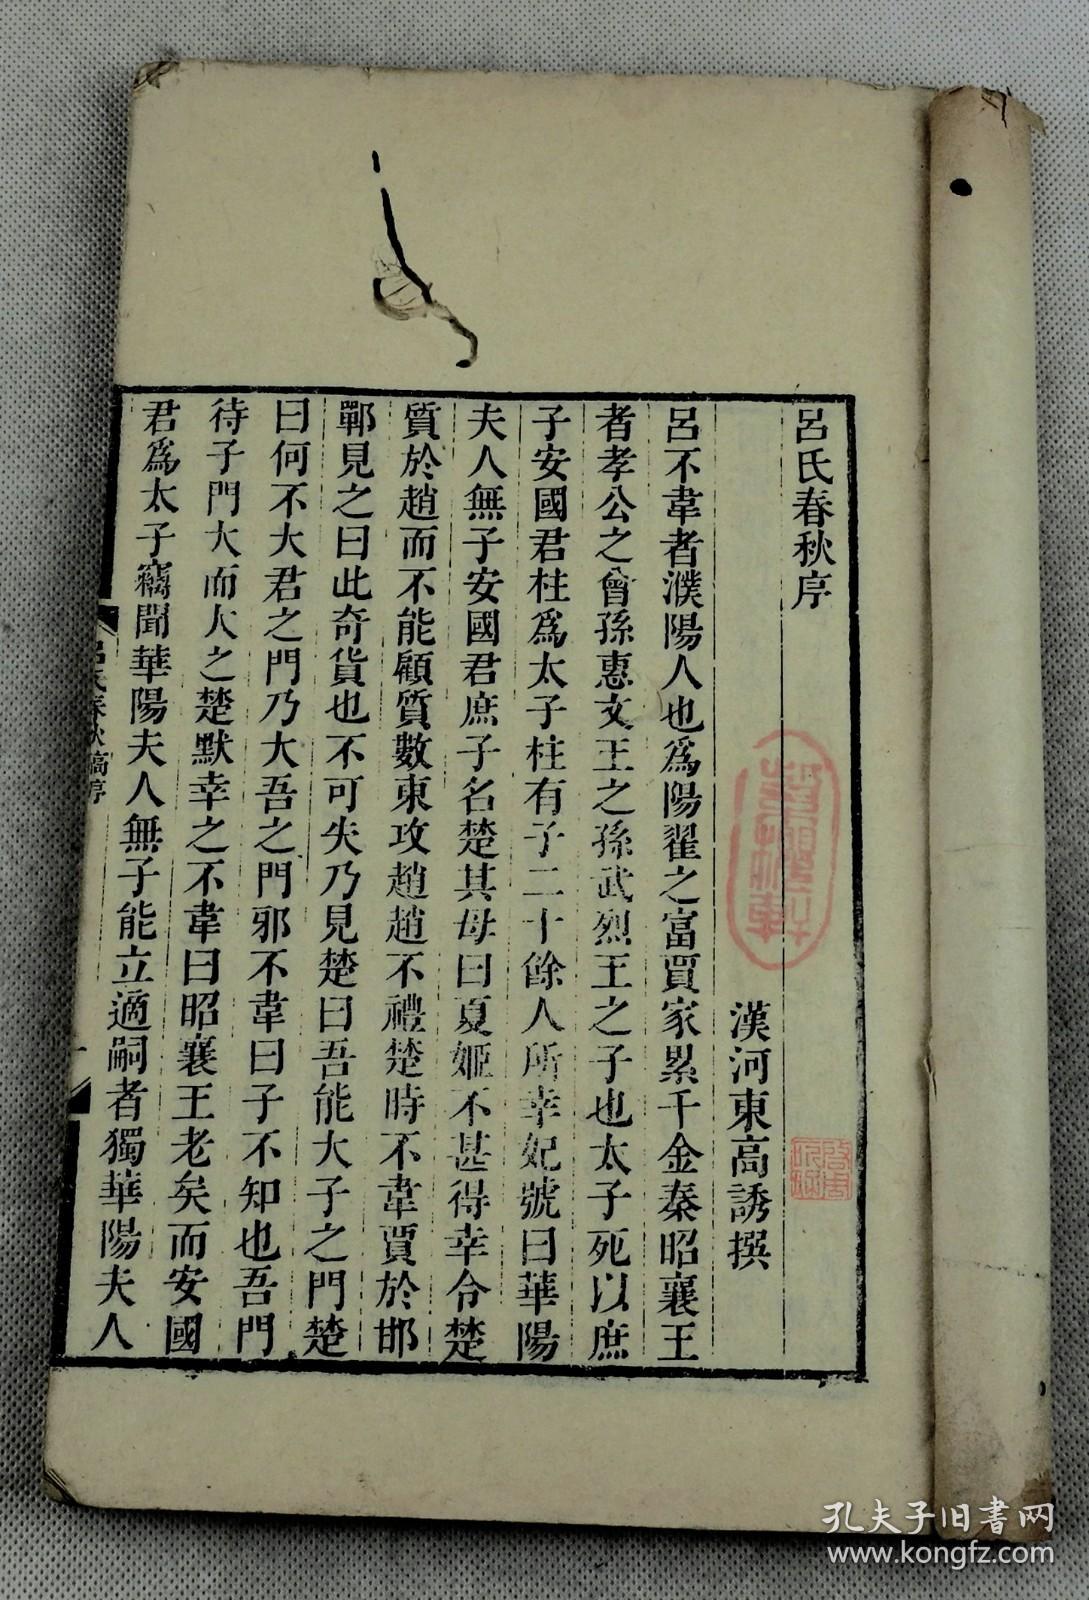 呂氏春秋序
漢河東高誘撰
呂不韋者濮陽人也爲陽翟之富賈家累千金秦昭襄王
者孝公之曾孫惠文王之孫武烈王之子也太子死以庶
子安國君柱爲太子柱有子二十餘人所幸妃號曰華陽
夫人無子安國君庶子名楚其母曰夏姬不甚得幸令楚
質於趙而不能顧質數東攻趙趙不禮楚時不韋賈於邯
鄲見之曰此奇貨也不可失乃見楚曰吾能大子之門楚
曰何不大君之門乃大吾之門邪不韋曰子不知也吾門
待子門大而大之楚默幸之不韋曰昭襄王老矣而安國
君爲太子竊聞華陽夫人無子能立適嗣者獨華陽夫人
呂氏春秋 序
孔夫子旧書网
www.kongfz.com